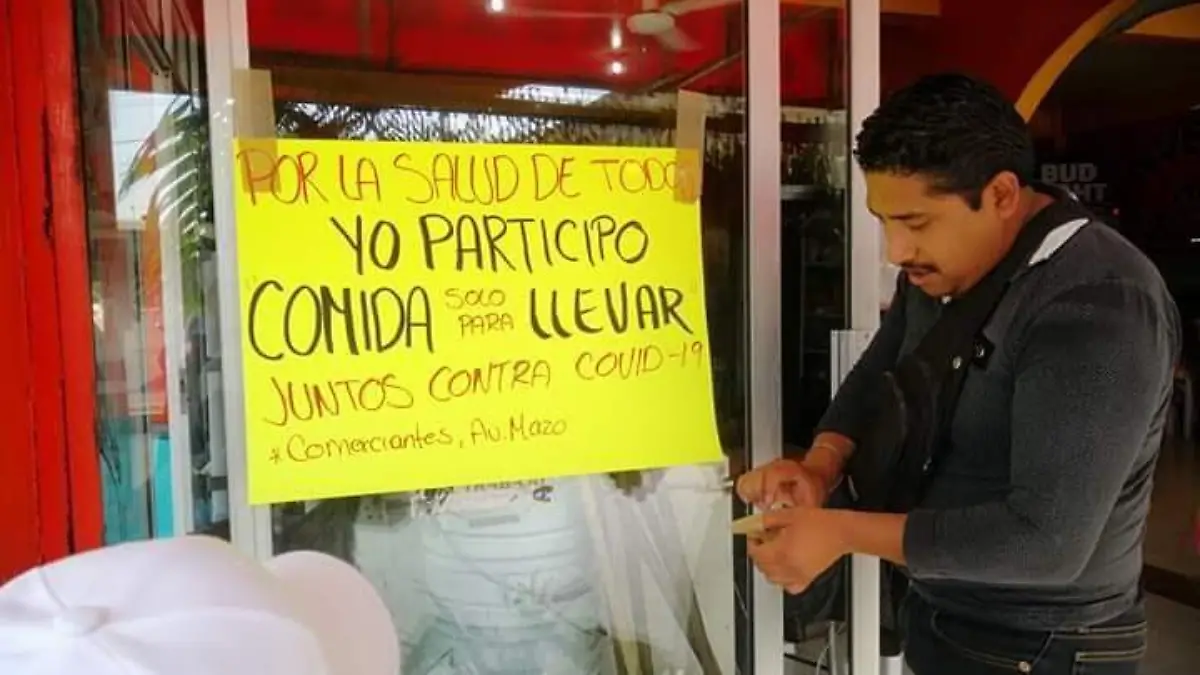 POR LA SALUD DE TODOS
YO PARTICIPO
"COMIDA SOLO PARA LLEVAR"
JUNTOS CONTRA COVID-19
*Comerciantes, Av. Mazo
BUD
LIGHT